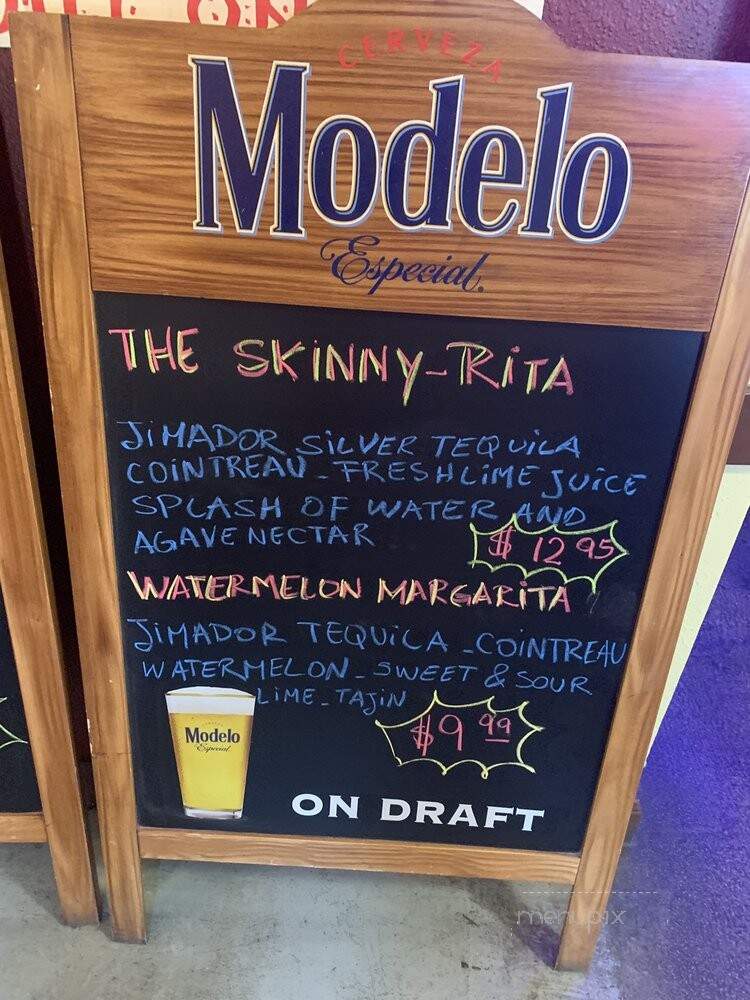 CERVEZA
Modelo
Especial.
THE SKINNY-RITA
JIMADOR SILVER TEQUILA
COINTREAU - FRESH LIME JUICE
SPLASH OF WATER AND
AGAVE NECTAR
$ 12 95
WATERMELON MARGARITA
JIMADOR TEQUILA - COINTREAU
WATERMELON - SWEET & SOUR
LIME - TAJIN
$9 99
Modelo
Especial
ON DRAFT
menupix